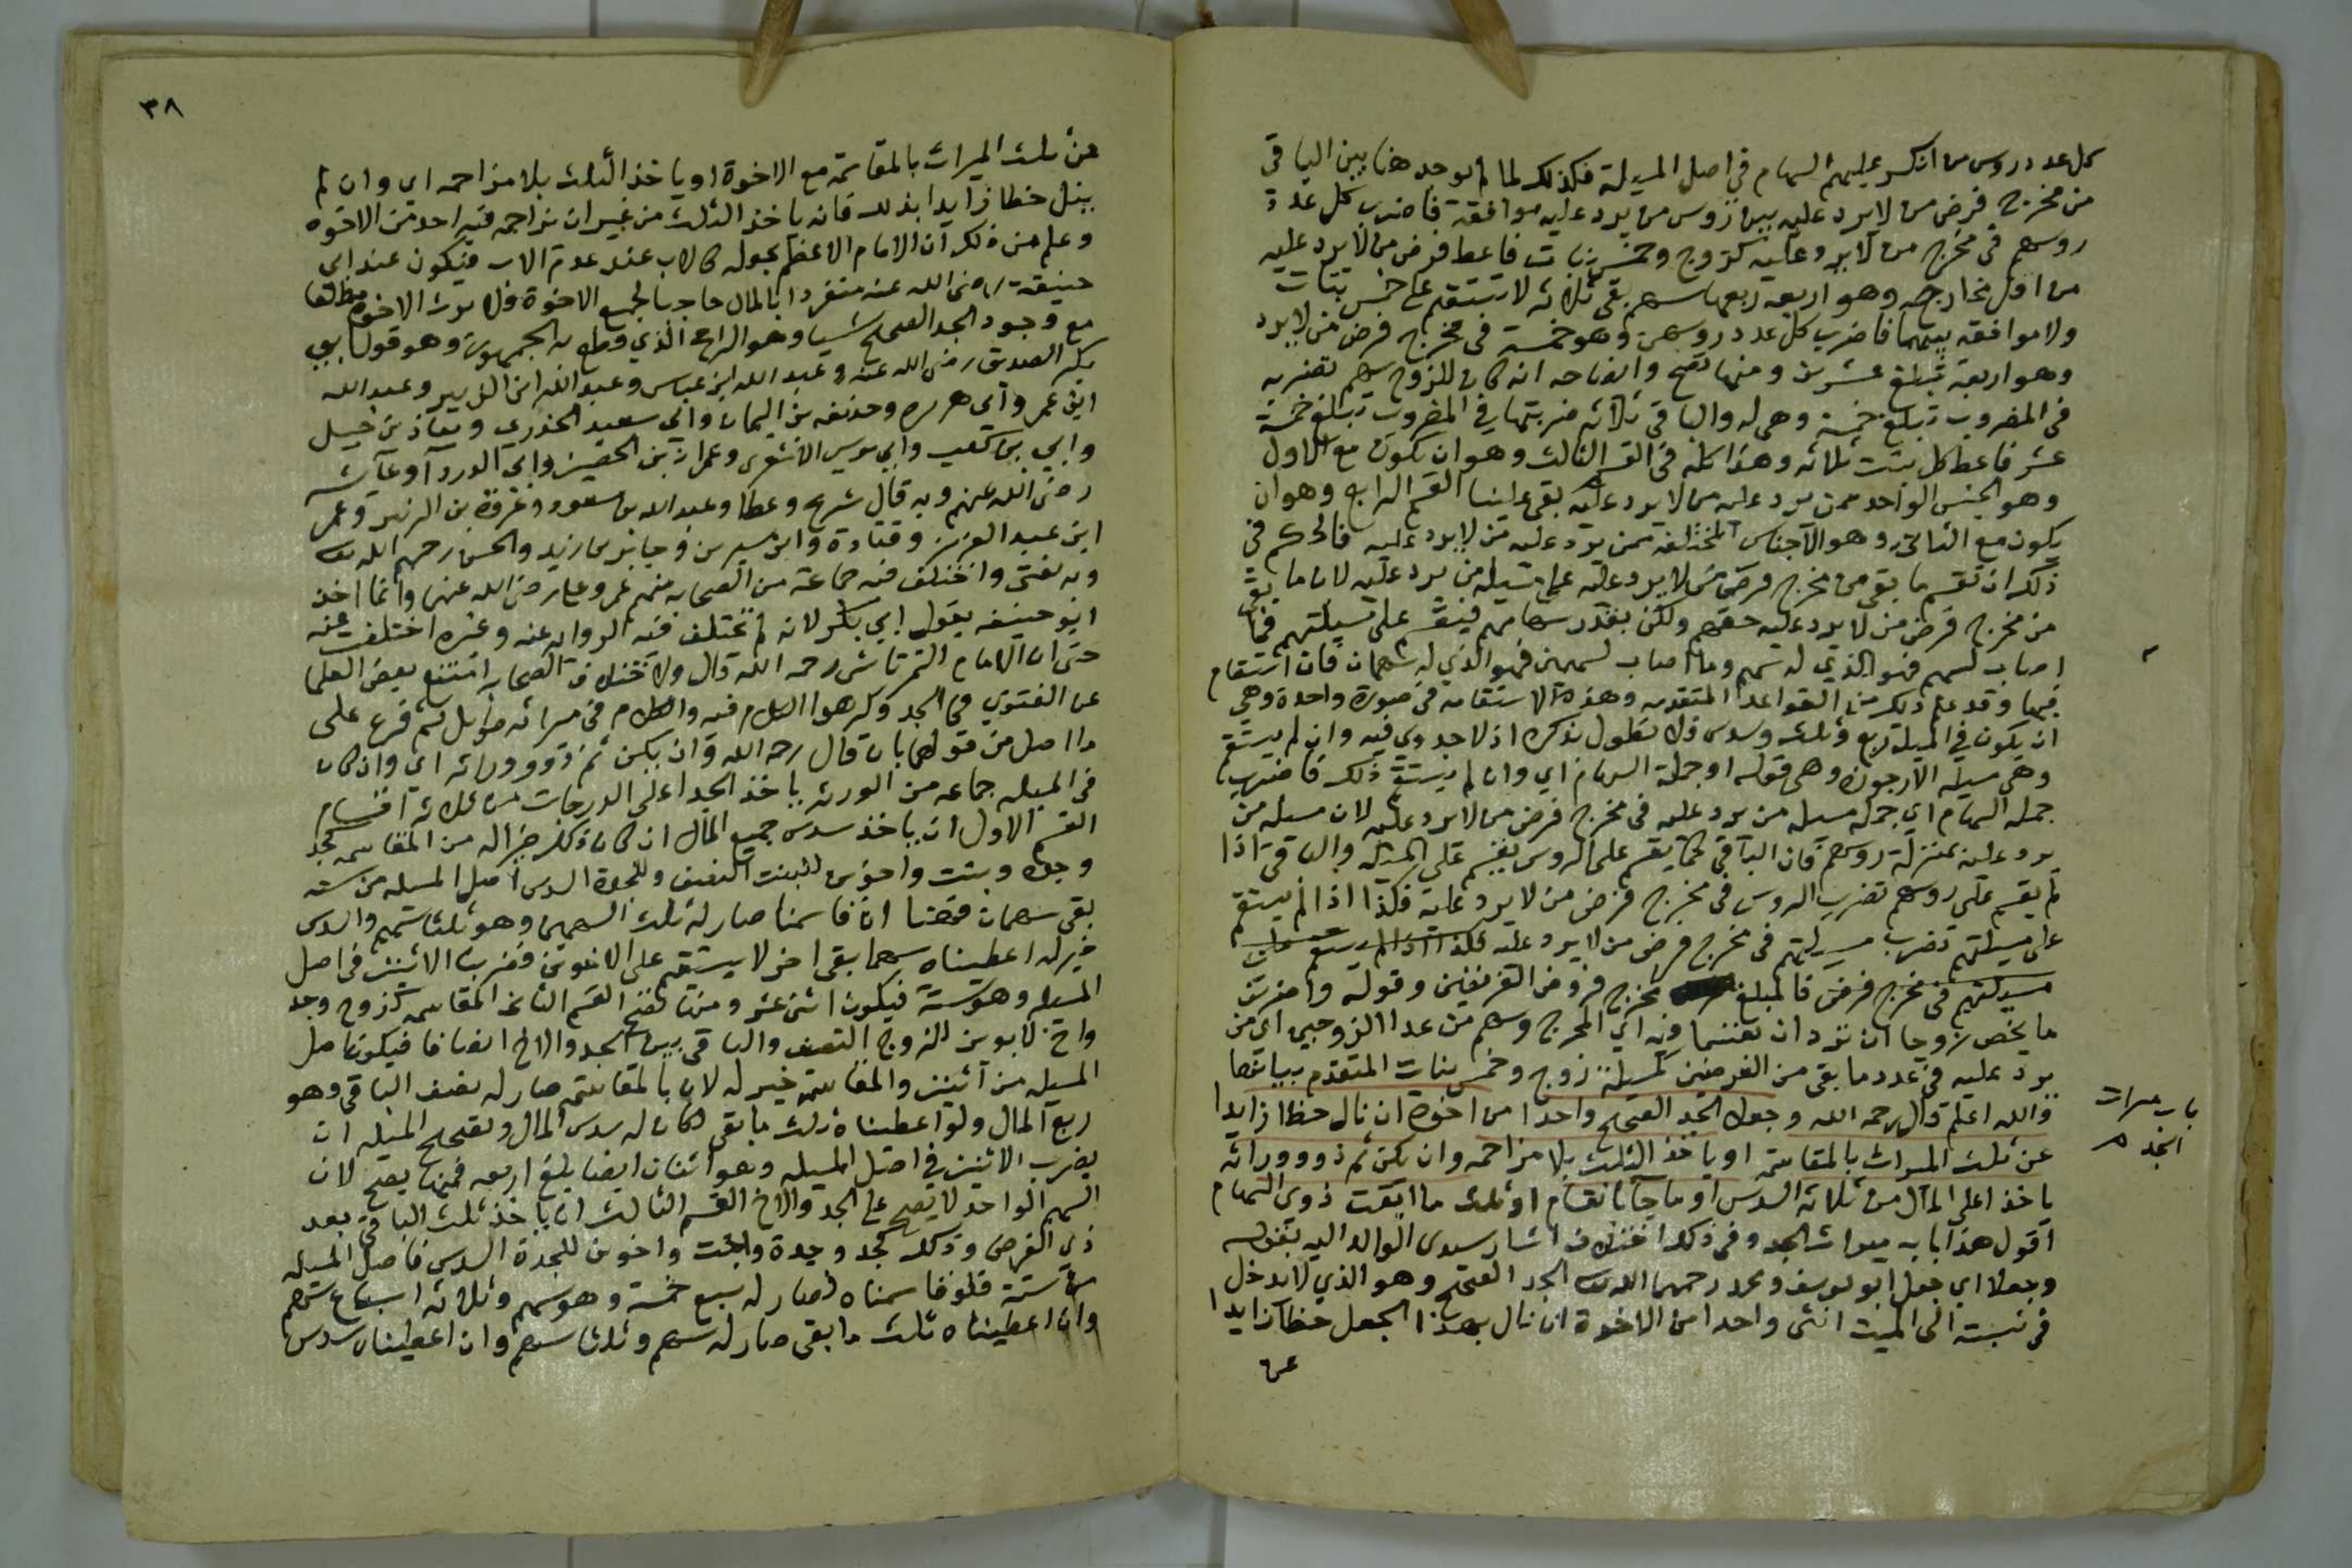 كل عدد روس من انكسر عليهم السهام في اصل المسيلة فكذلك لما لم يوجد هنا بين الباقي
من مخرج فرض من لا يرد عليه وبين روس من يرد عليه موافقة فاضرب كل عدد
روسهم في مخرج من لا يرد عليه كزوج وخمس بنات فاعط فرض من لا يرد عليه
من اول مخارجه وهو اربعه ربعها سهم بقي ثلاثه لا تستقيم على خمس بنات
ولا موافقه بينهما فاضرب كل عدد روسهن وهو خمسة في مخرج فرض من لا يرد
وهو اربعة تبلغ عشرين ومنها تصح وايضاحه انه كان للزوج سهم تضربه
في المضروب تبلغ خمسة وهي له والباقي ثلاثه ضربتها في المضروب تبلغ خمسة
عشر فاعط كل بنت ثلاثه وهذا كله في القسم الثالث وهو ان يكون مع الاول
وهو الجنس الواحد ممن يرد عليه من لا يرد عليه بقي علينا القسم الرابع وهو ان
يكون مع الثاني وهو الاجناس المختلفه ممن يرد عليه من لا يرد عليه فالحكم في
ذلك ان تقسم ما بقي من مخرج فرض من لا يرد عليه على مسيلة من يرد عليه لان ما بقي
من مخرج فرض من لا يرد عليه حقهم ولكن بقدر سهامهم فيقسم على مسيلتهم فما
اصاب لسهم فهو للذي له سهم وما اصاب لسهمين فهو للذي له سهمان فان استقام
فبها وقد علم ذلك من القواعد المتقدمه وهذه الاستقامه في صورة واحدة وهي
ان يكون في المسيلة ربع وثلث وسدس ولا نطول بذكره اذ لا جدوي فيه وان لم يستقم
وهي مسيله الارجوزة وهي قوله او جملة السهام اي وان لم يستقم ذلك فاضرب
جمله السهام اي جملة مسيله من يرد عليه في مخرج فرض من لا يرد عليه لان مسيله من
يرد عليه بمنزلة روسهم فان الباقي كما يقسم على الروس يقسم على المسيله والباقي اذا
لم يقسم على روسهم تضرب الروس في مخرج فرض من لا يرد عليه فكذا اذا لم يستقم
على مسيلتهم تضرب مسيلتهم في مخرج فرض من لا يرد عليه فكذا اذا لم يستقم على
مسيلتهم في مخرج فرض فالمبلغ مخرج فروض الفريقين وقوله واضربن
ما يخص زوجا ان ترد ان تقسما فيه اي المخرج وسهم من عدا الزوجين اي من
يرد عليه في عدد ما بقي من الفرضين كمسيلة زوج وخمس بنات المتقدم بيانها
والله اعلم قال رحمه الله وجعلا الجد الصحيح واحدا من اخوة ان نال حظا زايدا
عن ثلث الميراث بالمقاسمة او ياخذ الثلث بلا مزاحمه وان يكن ثم ذوو وراثه
ياخذ اعلى المال من ثلاثه السدس او ما جا بانقسام او ثلث ما ابقت ذوى السهام
اقول هذا بابه ميراث الجد وفي ذلك اختلاف اشار سيدى الوالد اليه بقوله
وجعلا اي جعل ابو يوسف ومحمد رحمهما الله الجد الصحيح وهو الذي لا يدخل
في نسبته الى الميت انثى واحدا من الاخوة ان نال بهذا الجعل حظا زايدا
عن
باب ميراث
الجد
٣٨
عن ثلث الميراث بالمقاسمة مع الاخوة او ياخذ الثلث بلا مزاحمه اي وان لم
ينل حظا زايدا بذلك فانه ياخذ الثلث من غير ان يزاحمه فيه احد من الاخوه
وعلم من ذلك ان الامام الاعظم يجعله كالاب عند عدم الاب فيكون عند ابي
حنيفة رضى الله عنه منفردا بالمال حاجبا لجميع الاخوة فلا يرث الاخوة مطلقا
مع وجود الجد الصحيح شيا وهو الراجح الذي قطع به الجمهور وهو قول ابي
بكر الصديق رضى الله عنه وعبد الله ابن عباس وعبد الله ابن الزبير وعبد الله
ابن عمر وابي هريره وحذيفه بن اليمان وابي سعيد الخذري ومعاذ بن جبل
وابي بن كعب وابي موسي الاشعرى وعمران بن الحصين وابي الدرداو عايشه
رضى الله عنهم وبه قال شريح وعطا وعبد الله بن مسعود وعروة بن الزبير وعمر
ابن عبد العزيز وقتادة وابن سيرين وجابر بن زيد والحسن رحمهم الله
وبه يفتى واختلف فيه جماعة من الصحابه منهم عمر وعلي رضى الله عنهما وانما اخذ
ابو حنيفه بقول ابي بكر لانه لم تختلف فيه الروايه عنه وغيره اختلفت عنه
حتى ان الامام التمرتاشى رحمه الله قال ولاختلاف الصحابه امتنع بعض العلما
عن الفتوي في الجد وكرهوا الكلام فيه والكلام في ميراثه طويل ثم فرع على
ما اصل من قولهما بان قال رحمه الله وان يكن ثم ذوو وراثه اي وان كان
في المسيله جماعه من الورثه ياخذ الجد اعلى الدرجات من ثلاثة اقسام
القسم الاول ان ياخذ سدس جميع المال ان كان ذلك خيرا له من المقاسمه كجد
وجدة وبنت واخوين للبنت النصف وللجدة السدس اصل المسيله من سته
بقى سهمان فمهما انا قاسمنا صار له ثلث السهمين وهو ثلثا سهم والسدس
خير له اعطيناه سهما بقى اخر لا يستقيم على الاخوين فضرب الاثنين في اصل
المسيله وهو ستة فيكون اثنى عشر ومنها تصح القسم الثاني المقاسمه كزوج وجد
واخ لابوين للزوج النصف والباقى بين الجد والاخ انصافا فيكون اصل
المسيله من اثنين والمقاسمة خير له لان بالمقاسمة صار له نصف الباقى وهو
ربع المال ولو اعطيناه ثلث ما بقى لكان له سدس المال وتصحيح المسيله ان
يضرب الاثنين في اصل المسيله وهو اثنان ايضا يبلغ اربعه فمنها يصح لان
السهم الواحد لا يصح على الجد والاخ القسم الثالث ان ياخذ ثلث الباقي بعد
ذي الفرض وذلك كجد وجدة وبنت واخوين للجدة السدس فاصل المسيله
من ستة فلو قاسمناه لصار له سبع خمسة وهو سهم وثلاثه اسباع سهم
وان اعطيناه ثلث ما بقى صار له سهم وثلثا سهم وان اعطيناه سدس